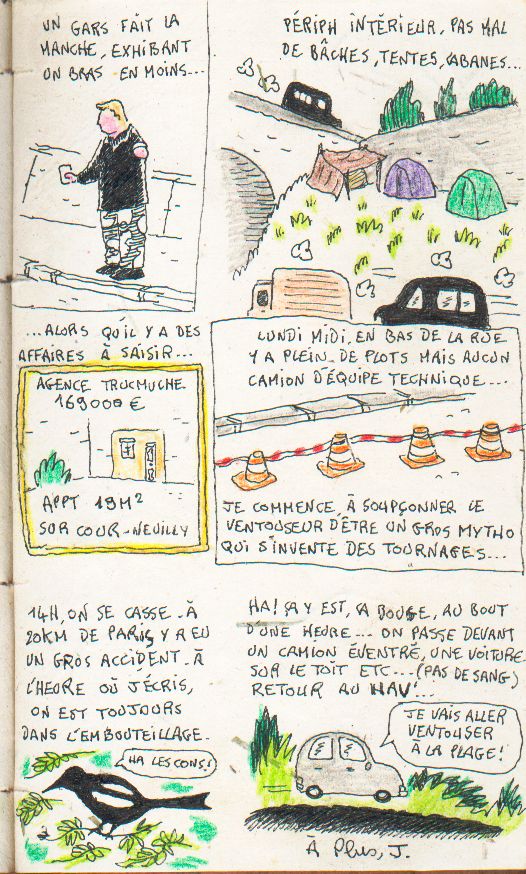 UN GARS FAIT LA
MANCHE, EXHIBANT
UN BRAS EN MOINS...
PÉRIPH INTÉRIEUR, PAS MAL
DE BÂCHES, TENTES, CABANES...
...ALORS QU'IL Y A DES
AFFAIRES À SAISIR...
AGENCE TRUCMUCHE
169000 €
APPT 19M²
SUR COUR - NEUILLY
LUNDI MIDI, EN BAS DE LA RUE
Y A PLEIN DE PLOTS MAIS AUCUN
CAMION D'ÉQUIPE TECHNIQUE...
JE COMMENCE À SOUPÇONNER LE
VENTOUSEUR D'ÊTRE UN GROS MYTHO
QUI S'INVENTE DES TOURNAGES...
14H, ON SE CASSE - À
20KM DE PARIS Y A EU
UN GROS ACCIDENT - À
L'HEURE OÙ J'ÉCRIS,
ON EST TOUJOURS
DANS L'EMBOUTEILLAGE -
HA LES CONS !
HA ! ÇA Y EST, ÇA BOUGE, AU BOUT
D'UNE HEURE... ON PASSE DEVANT
UN CAMION ÉVENTRÉ, UNE VOITURE
SUR LE TOIT ETC... (PAS DE SANG)
RETOUR AU HAV'...
JE VAIS ALLER
VENTOUSER
À LA PLAGE !
À Plus, J.